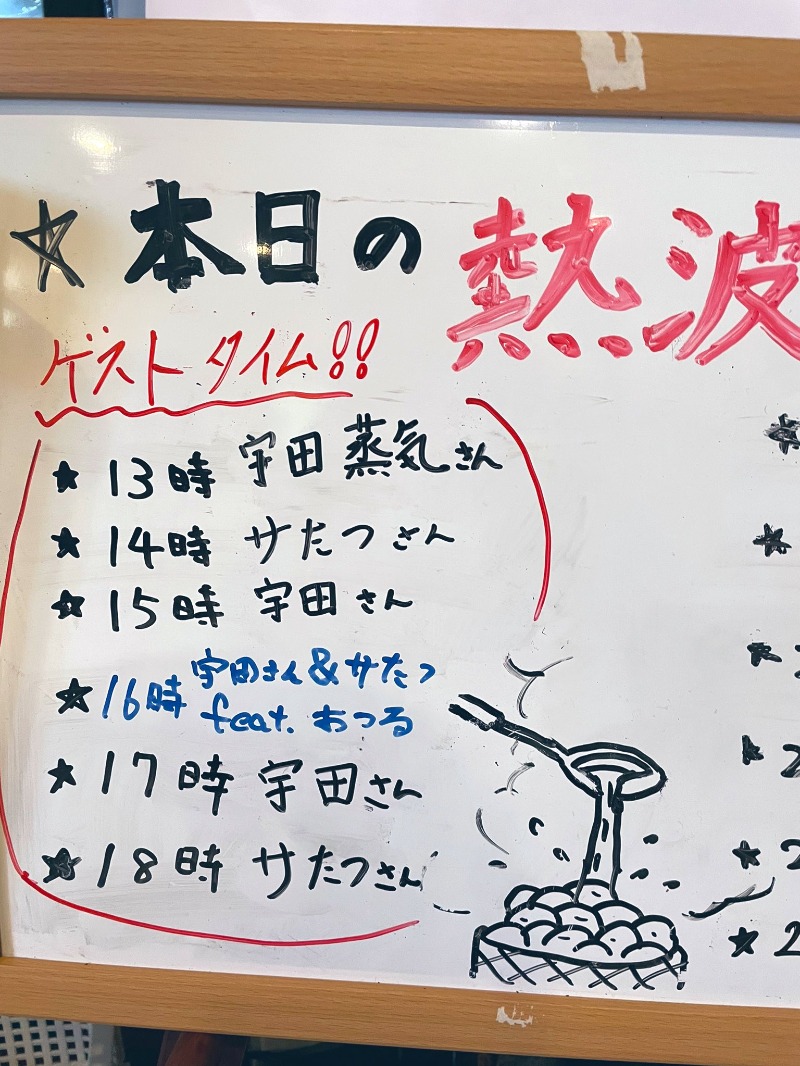 ☆ 本日の 熱波
ゲストタイム!!
★ 13時 宇田蒸気さん
★ 14時 サたつさん
★ 15時 宇田さん
★ 16時 宇田さん&サたつ
feat. おつる
★ 17時 宇田さん
★ 18時 サたつさん